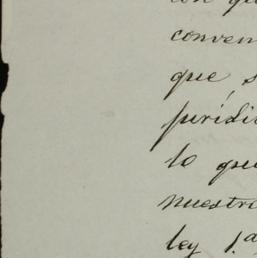 con qu
conven
que s
juridi
lo qu
nuestr
ley 1.ª